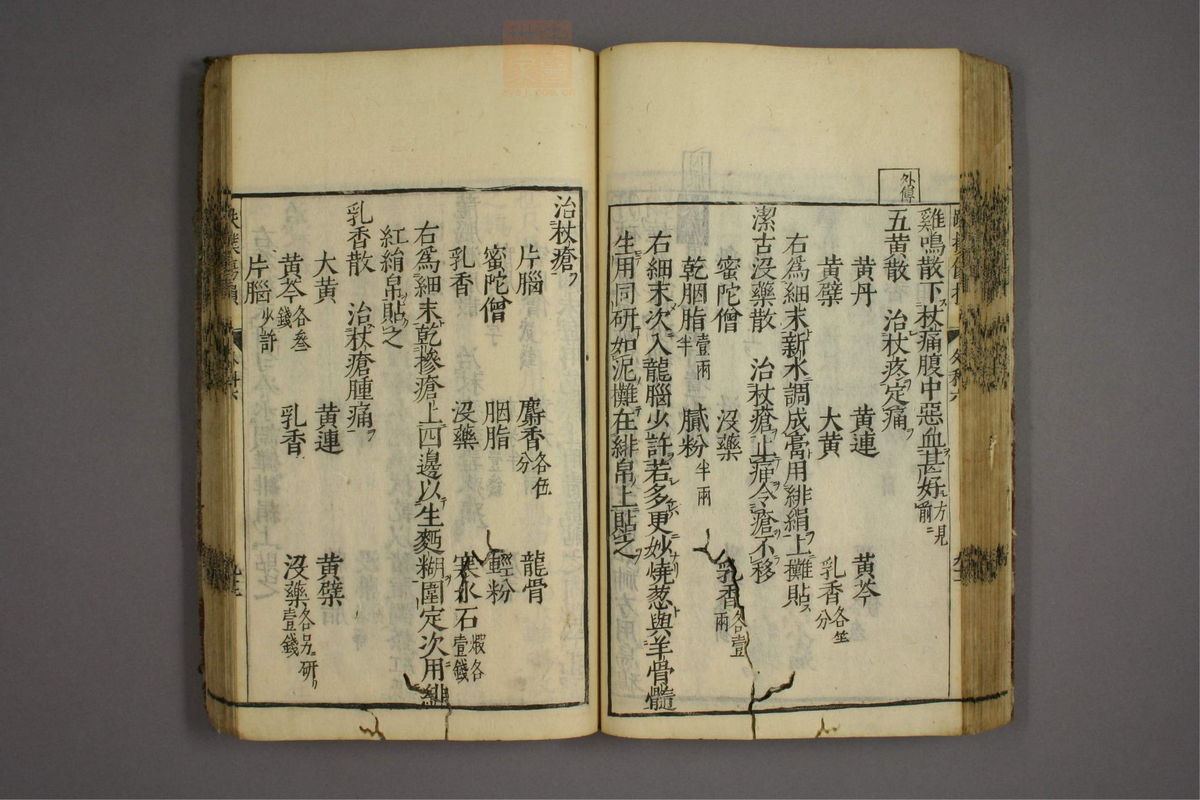 外傅
雞鳴散下杖痛腹中惡血甚好方見前
五黄散 治杖疼定痛
黄丹 黄連 黄芩
黄蘗 大黄 乳香各等分
右為細末新水調成膏用緋絹上攤貼
潔古没藥散 治杖瘡止痛令瘡不移
蜜陀僧 没藥 乳香各壹兩
乾胭脂壹兩半 膩粉半兩
右細末次入龍腦少許若多更妙燒葱與羊骨髓
生用同研如泥攤在緋帛上貼之
治杖瘡
片腦 麝香各伍分 龍骨
蜜陀僧 胭脂 輕粉
乳香 没藥 寒水石煅各壹錢
右為細末乾摻瘡上四邊以生麪糊圍定次用緋
紅絹帛貼之
乳香散 治杖瘡腫痛
大黄 黄連 黄蘗
黄芩各叁錢 乳香 没藥各另研壹錢
片腦少許